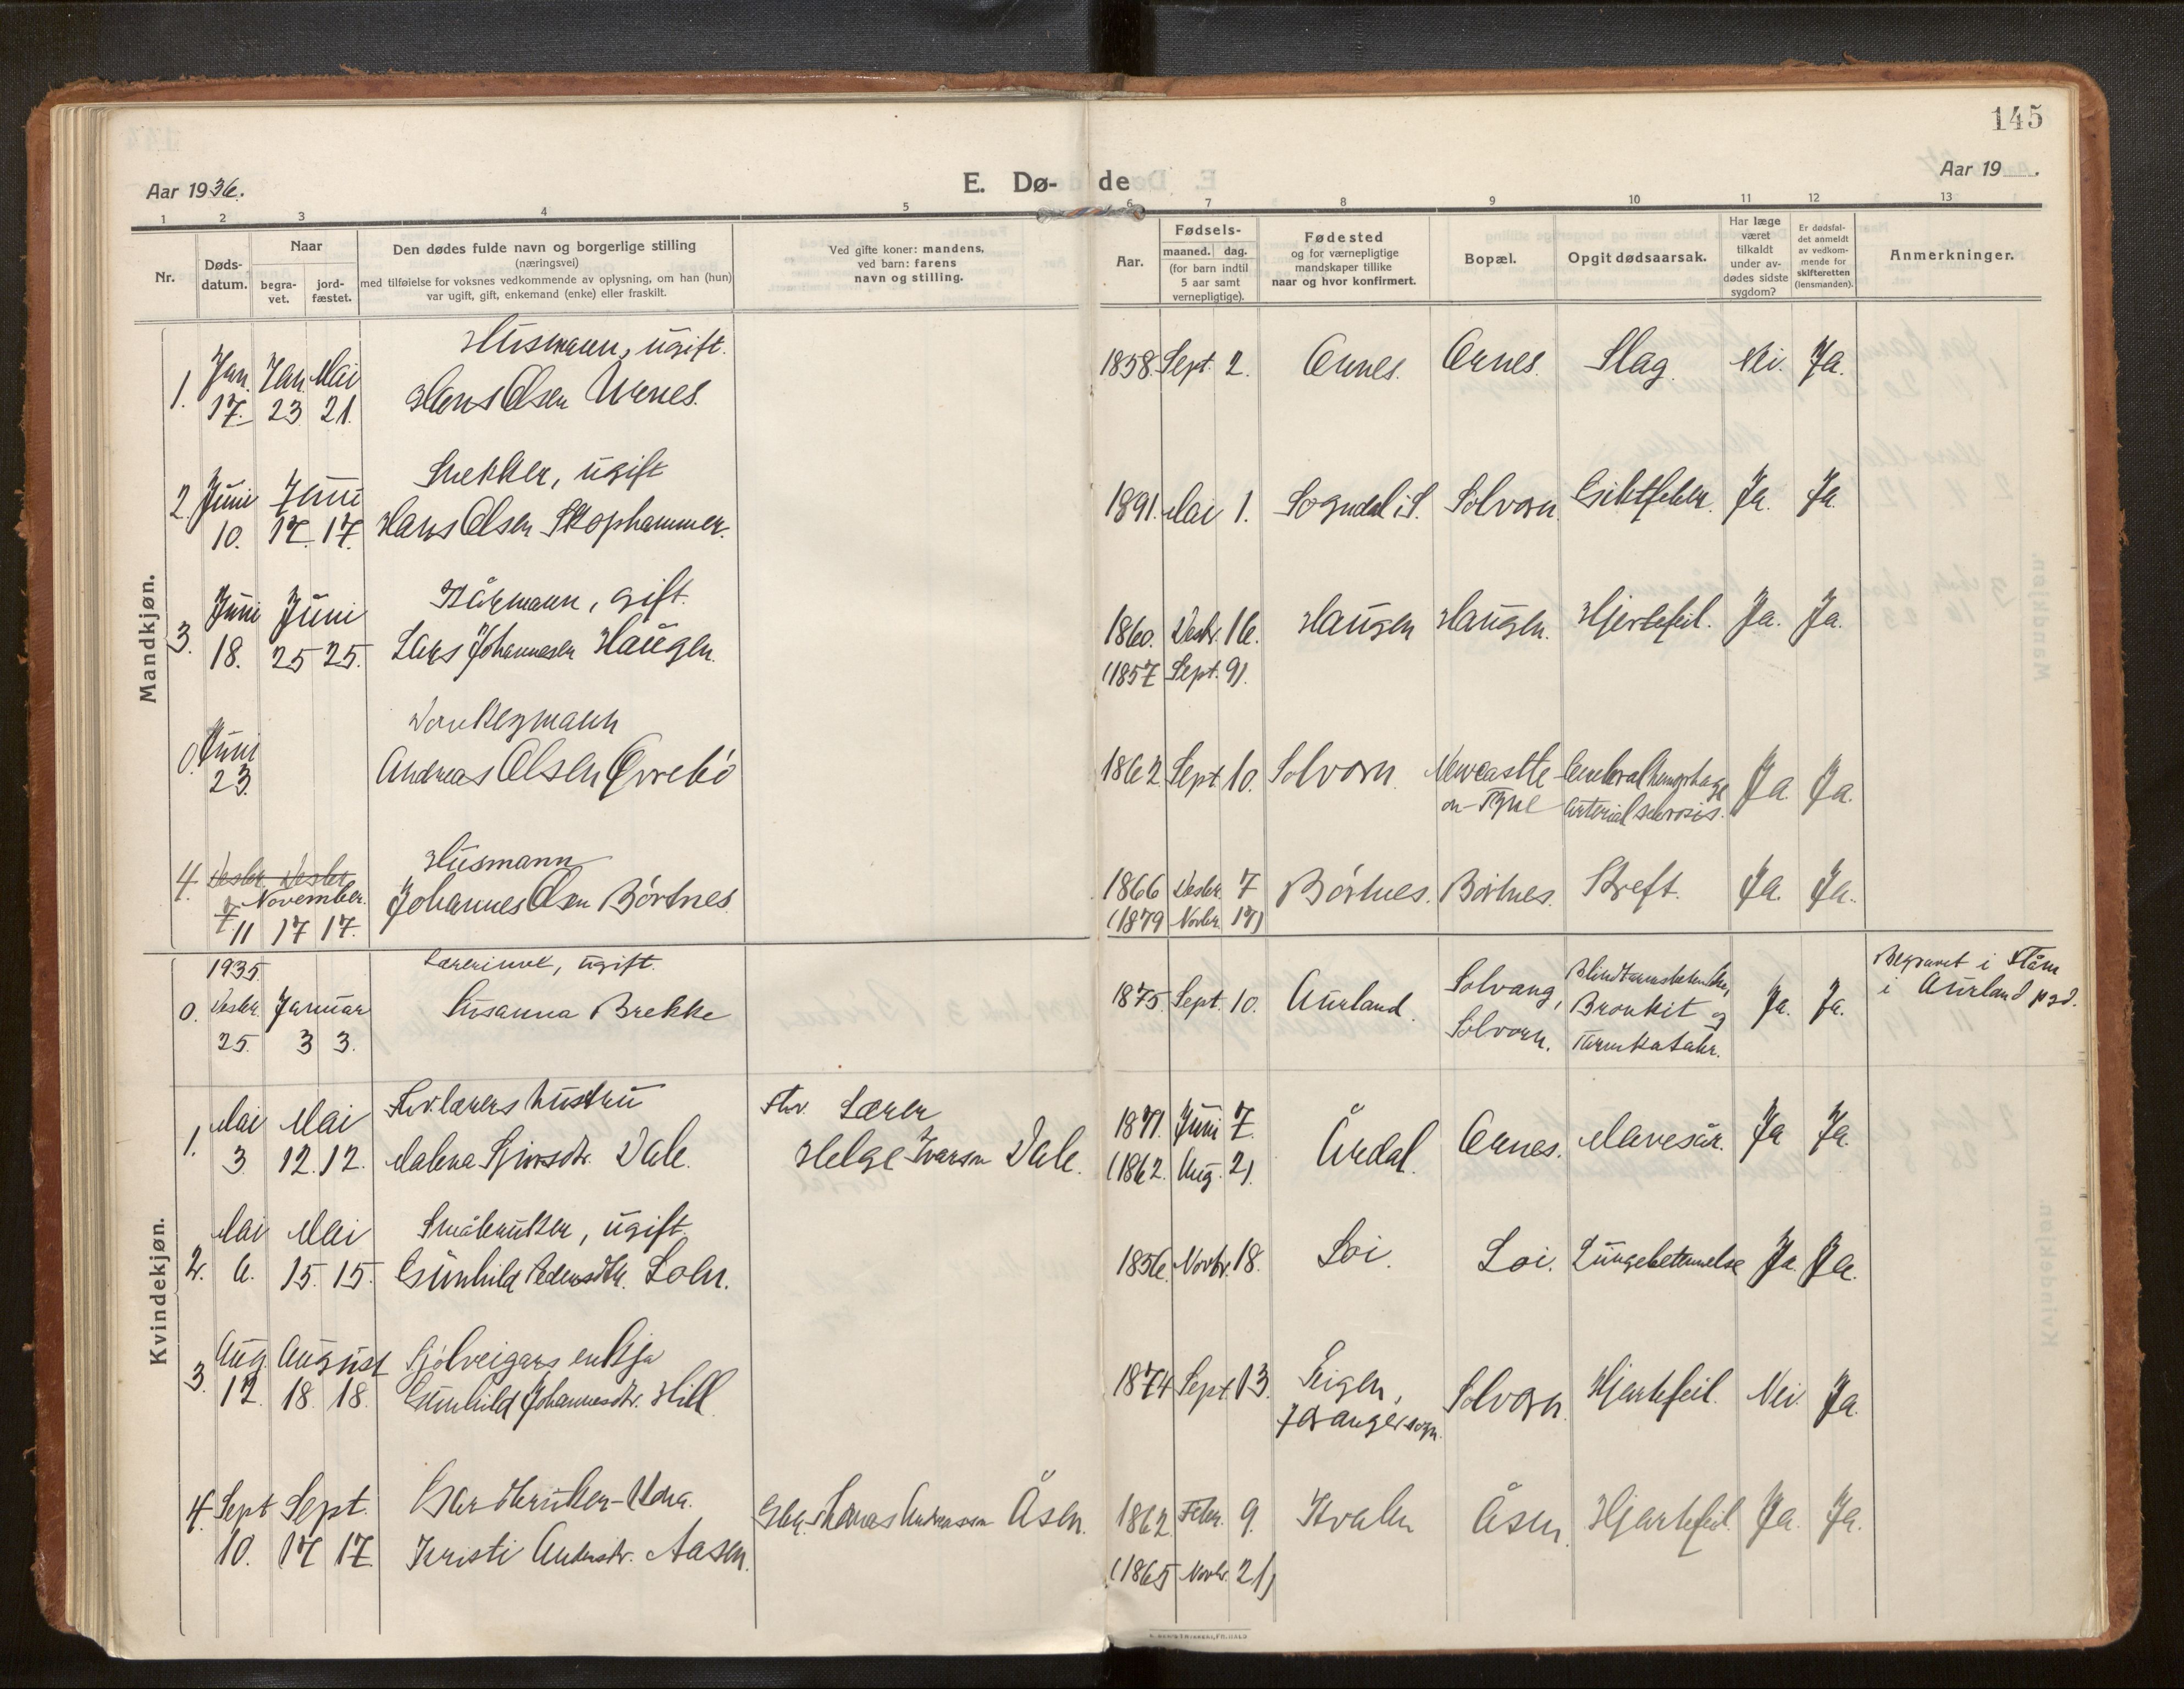 145
Aar 1936.
E. Dø- de
Aar 19 .
1 2 3 4 5 6 7 8 9 10 11 12 13
Nr.
Døds-
datum.
Naar
begra-
vet.
jord-
fæstet.
Den dødes fulde navn og borgerlige stilling
(næringsvei)
med tilføielse for voksnes vedkommende av oplysning, om han (hun)
var ugift, gift, enkemand (enke) eller fraskilt.
Ved gifte koner: mandens,
ved barn: farens
navn og stilling.
Aar.
Fødsels-
maaned. dag.
(for barn indtil
5 aar samt
vernepligtige).
Fødested
og for værnepligtige
mandskaper tillike
naar og hvor konfirmert.
Bopæl.
Opgit dødsaarsak.
Har læge
været
tilkaldt
under av-
dødes sidste
sygdom?
Er dødsfal-
det anmeldt
av vedkom-
mende for
skifteretten
(lensmanden).
Anmerkninger.
Mandkjøn.
Husmann, ugift.
1. Jan. Jan. Mai
17. 23 21.
Hans Olsen Urnes.
1858. Sept. 2. Ornes. Ornes. Slag. Nei. Ja.
Snekker, ugift
2. Juni Juni
10. 17. 17. Hans Olsen Skophammer.
1891. Mai 1. Sogndal i S. Solvorn. Ja. Ja.
Kårmann, gift.
3. Juni Juni
18. 25 25. Lars Johannesen Haugen.
1860. Desbr. 16. Haugen Haugen. Hjertefeil. Ja. Ja.
(1857 Sept. 9).
Donkeymann
0. Juni
23. Andreas Olsen Ørrebö
1862 Sept. 10. Solvorn. Newcastle Cerebral hemorrhage Ja. Ja.
on-Tyne arterial sclerosis.
Husmann
4. Desbr. Desbr.
November.
7. 11 17 17. Johannes Olsen Börtnes.
1866 Desbr. 7 Börtnes. Börtnes. Kreft. Ja. Ja.
(1879 Novbr. 17)
Kvindekjøn.
1935. Lærerinne, ugift.
0. Desbr. Januar
25. 3 3. Susanna Brekke
1875. Sept. 10. Aurland. Solvang,
Solvorn.
Bronkit og
Tarmkatahr.
Ja. Ja.
Begravet i Flåm
i Aurland pgd.
Fhv. lærers hustru
1. Mai Mai
3. 12. 12. Malena Dale.
Fhv. Lærer
Helge Ivarson Dale.
1871. Juni 7. Årdal. Ornes. Mavesår. Ja Ja.
(1862. Aug. 2).
Småbruker, ugift.
2. Mai Mai
6. 15. 15. Gunhild Pedersdtr. Loln.
1856. Novbr. 18. Loi. Loi. Lungebetennelse Ja. Ja.
Sjölveigars enkja
3. Aug. August
12. 18. 18. Gunhild Johannesdtr. Hill
1874 Sept. 13. Solvorn. Hjartefeil. Nei. Ja.
Gardbruker-kona.
4. Sept Sept.
10. 17 17. Kristi Andersdtr. Aasen.
Gbr. Thomas Andersson Åsen.
1862. Febr. 9. Kvalen Åsen. Hjartefeil. Ja. Ja.
(1865 Novbr. 21)